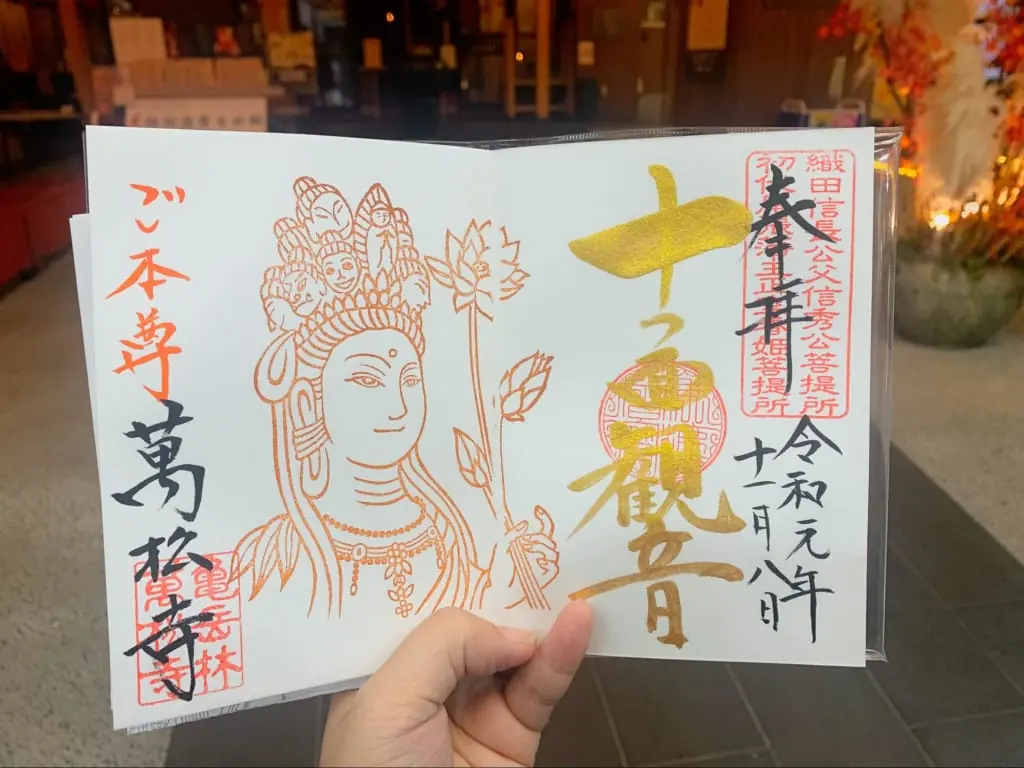 織田信長公父信秀公菩提所
初代尾張藩主正室春姫菩提所
奉拝
令和元年
十一月八日
十一面観音
ご本尊
萬松寺
亀岳林
萬松寺